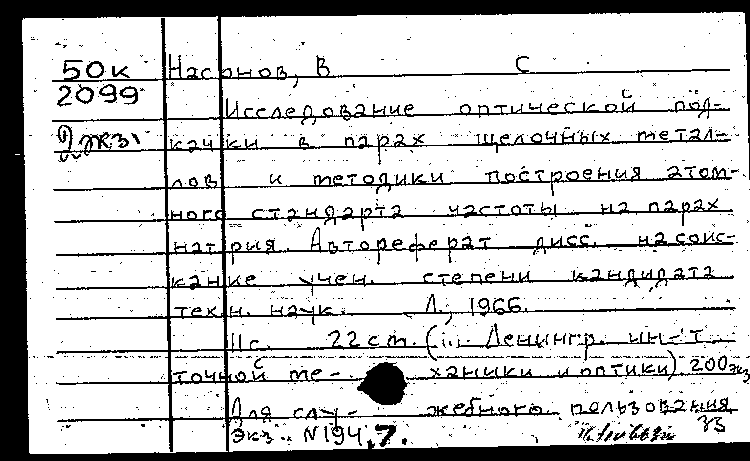 50к Насонов, В С
2099
Исследование оптической под-
2 экз. качки в парах щелочных метал-
лов и методики построения атом-
ного стандарта частоты на парах
натрия. Автореферат дисс. на соис-
кание учен. степени кандидата
техн. наук. Л., 1966.
11с. 22 см. ( Ленингр. ин-т
точной ме- ханики и оптики) 200 экз
Для слу- жебного пользования
Экз. N194,7. 33